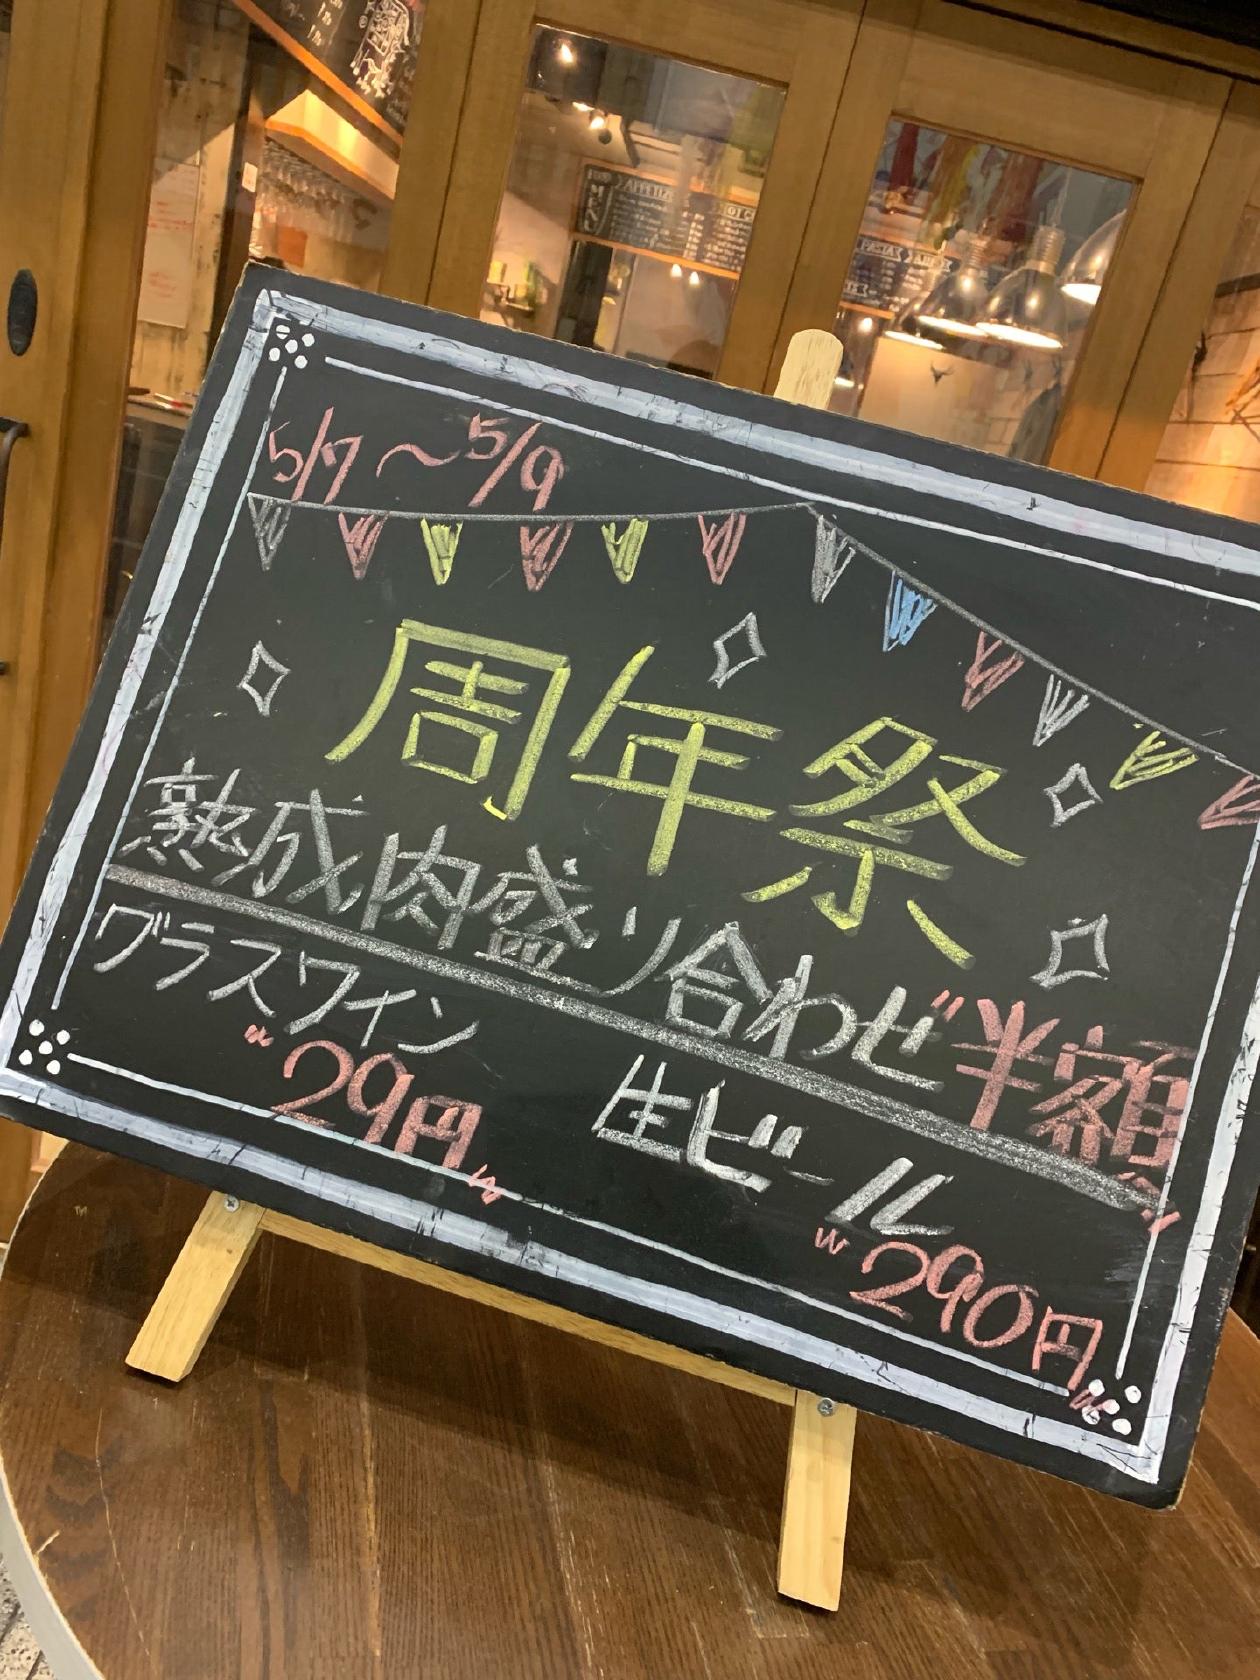 5/7～5/9
周年祭
熟成肉盛り合わせ"半額"
グラスワイン
"29円"
生ビール
"290円"
MENU
APPETIZ